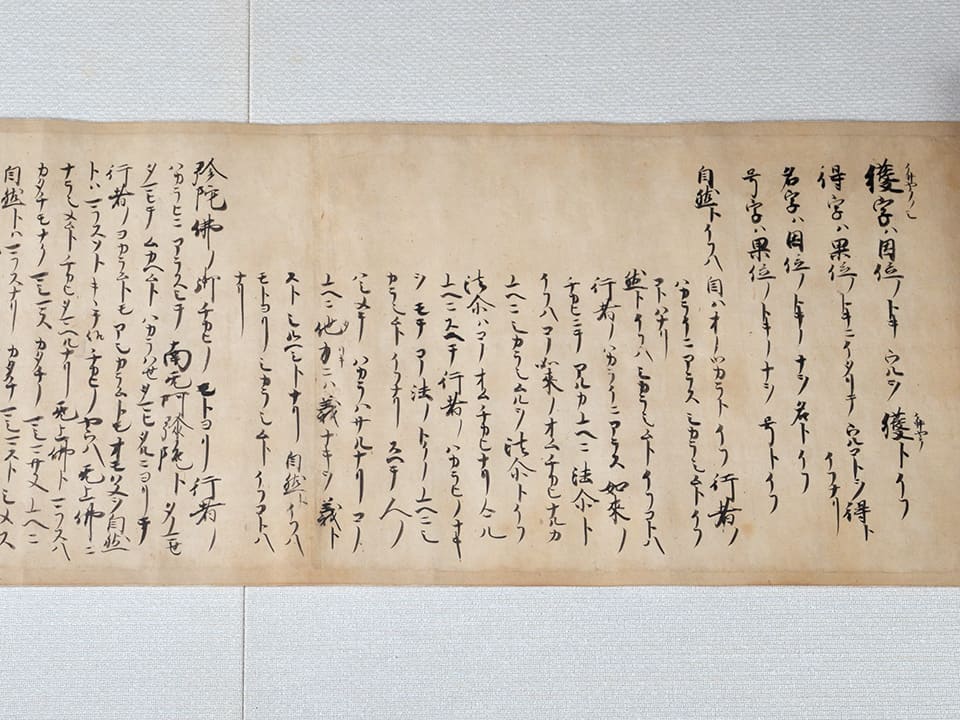 獲字ハ因位ノトキウルヲ獲トイフ
得字ハ果位ノトキニイタリテウルコトヲ得ト
イフナリ
名字ハ因位ノトキノナヲ名トイフ
号字ハ果位ノトキノナヲ号トイフ
自然トイフハ自ハオノツカラトイフ行者ノ
ハカライニアラスシカラシムトイフ
コトハナリ
然トイフハシカラシムトイフコトハ
行者ノハカラヒニアラス如来ノ
チカヒニテアルカユヘニ法尓ト
イフハコノ如来ノオムチカヒナルカ
ユヘニシカラシムルヲ法尓トイフ
法尓ハコノオムチカヒナリケル
ユヘニスヘテ行者ノハカラヒノナキ
ヲモチテコノ法ノトクノユヘニシ
カラシムトイフナリスヘテ人ノ
ハシメテハカラハサルナリコノ
ユヘニ他力ニハ義ナキヲ義ト
ストシルヘシトナリ自然トイフハ
モトヨリシカラシムトイフコトハ
ナリ
弥陀佛ノ御チカヒノモトヨリ行者ノ
ハカラヒニアラスシテ南无阿弥陀トタノマセ
タマヒテムカヘムトハカラハセタマヒタルニヨリテ
行者ノヨカラムトモアシカラムトモオモハヌヲ自然
トハマフスソトキヽテ候チカヒノヤウハ无上佛ニ
ナラシメムトチカヒタマヘルナリ无上佛トマフスハ
カタチモナクマシマスカタチノマシマサヌユヘニ
自然トハマフスナリカタチマシマストシメス